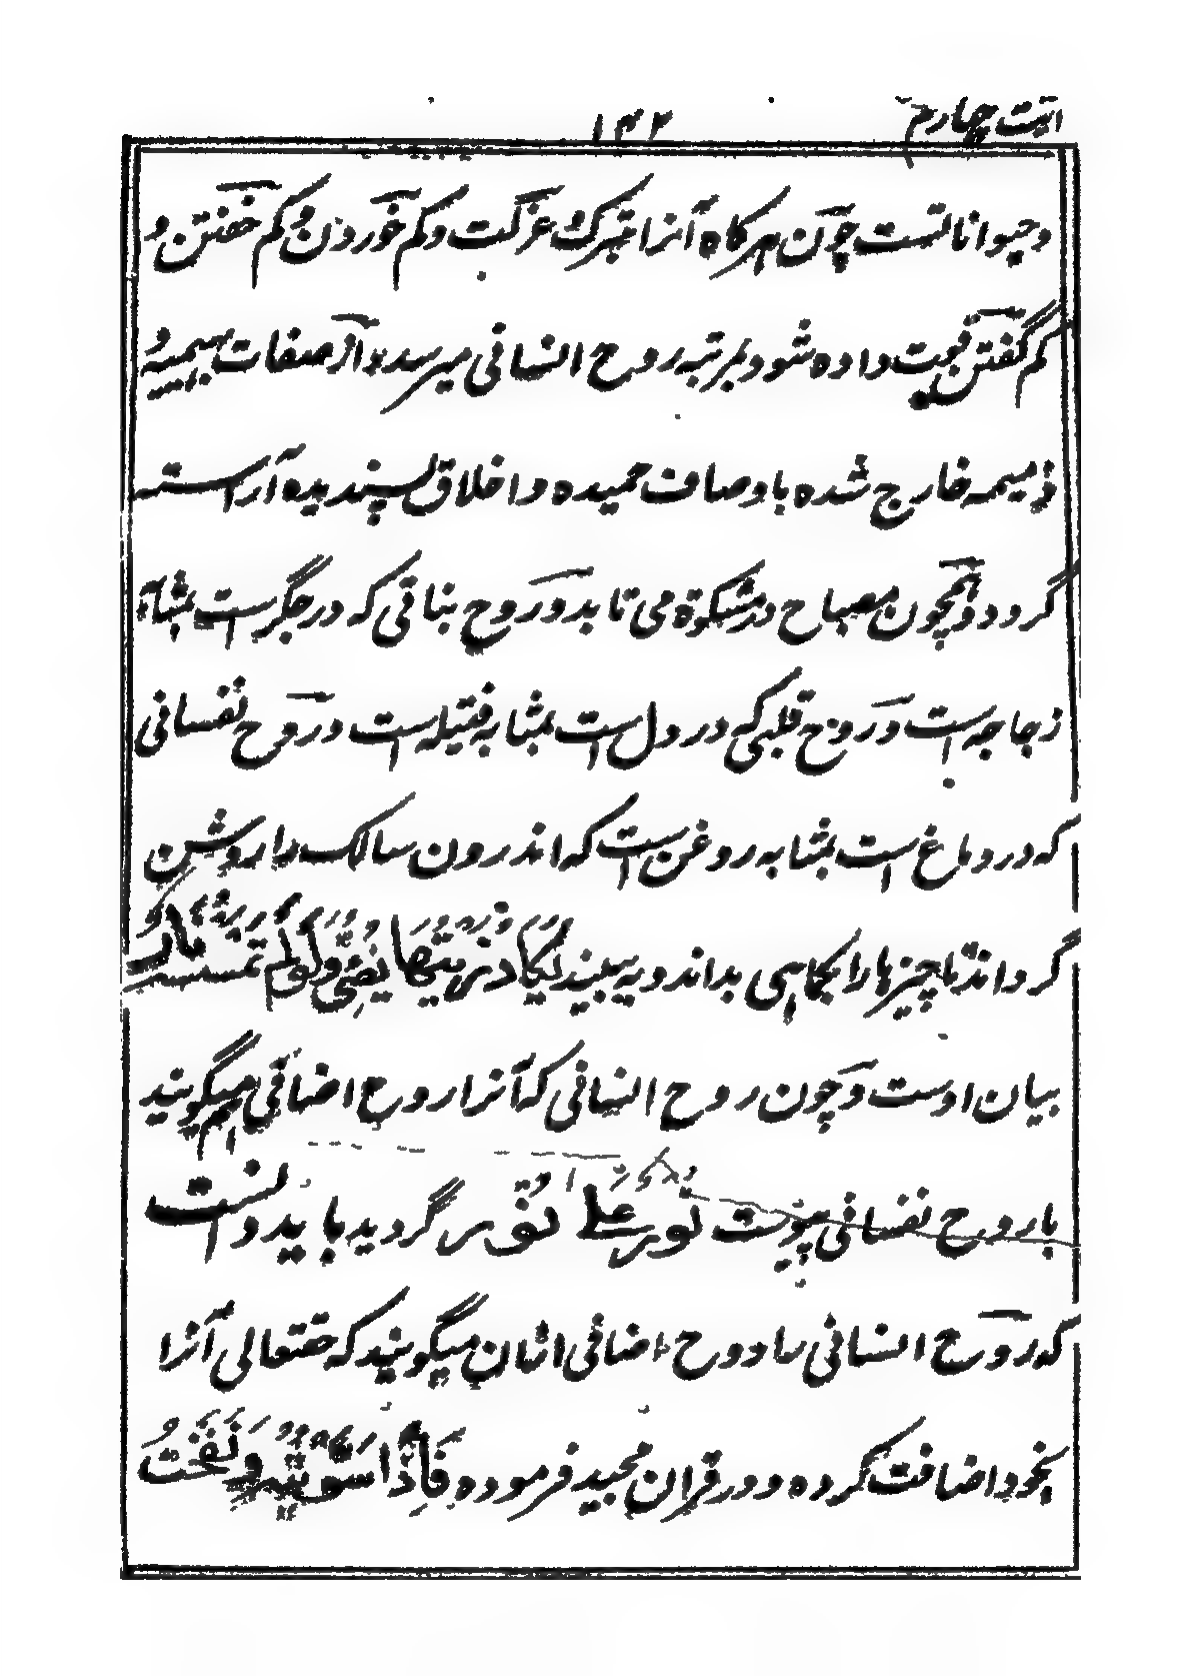 آیت چهارم
۱۳۲
و حیواناتست چون هرگاه آنرا بترک و عزلت و کم خوردن و کم خفتن و
کم گفتن قوت داده شود بمرتبه روح انسانی میرسد و از صفات بهیمیه و
ذمیمه خارج شده باوصاف حمیده و اخلاق پسندیده آراسته
گردد و همچون مصباح در مشکوة می تابد و روح نباتی که در جگرست بمثابۀ
زجاجه است و روح قلبی که در دل است بمثابه فتیله است و روح نفسانی
که در دماغ است بمثابه روغن است که اندرون سالک را روشن
گرداند تا چیزها را بکماهی بداند و به بیند لَیَکَادُ زَیْتُهَا یُضِیُٔ وَلَوْلَمْ تَمْسَسْهُ نَارُ
بیان اوست و چون روح انسانی که آنرا روح اضافی میگویند هم
با روح نفسانی پیوست نُورٌ عَلٰی نُوْر گردید باید دانست
که روح انسانی را روح اضافی ازان میگویند که حقتعالی آنرا
بخود اضافت کرده و در قران مجید فرموده فَاِذَا سَوَّیْتُهٗ وَنَفَخْتُ